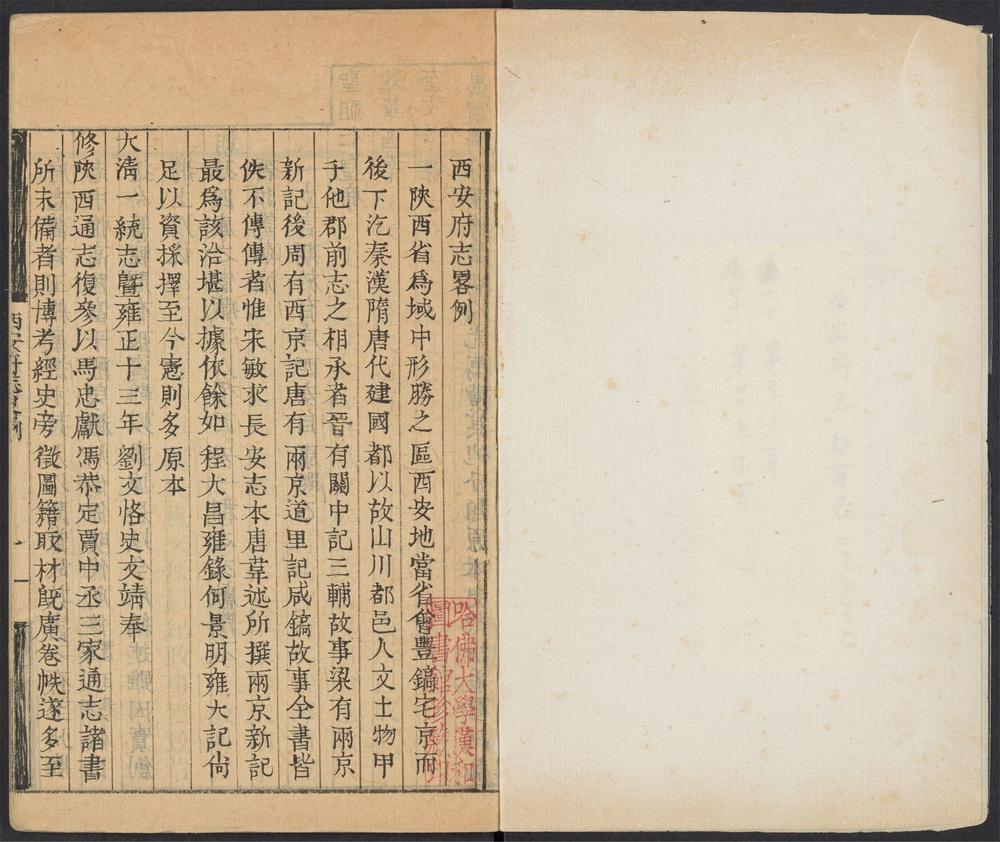 西安府志畧例
一陝西省爲域中形勝之區西安地當省會豐鎬宅京而
後下迄秦漢隋唐代建國都以故山川都邑人文土物甲
于他郡前志之相承者晉有關中記三輔故事梁有兩京
新記後周有西京記唐有兩京道里記咸鎬故事全書皆
佚不傳傳者惟宋敏求長安志本唐韋述所撰兩京新記
最爲該洽堪以據依餘如程大昌雍錄何景明雍大記尙
足以資採擇至今憲則多原本
大清一統志曁雍正十三年劉文恪史文靖奉
修陝西通志復參以馬忠獻馮恭定賈中丞三家通志諸書
所未備者則博考經史旁徵圖籍取材旣廣卷帙遂多至
西安府志
一
哈佛大學漢和
圖書館珍藏印